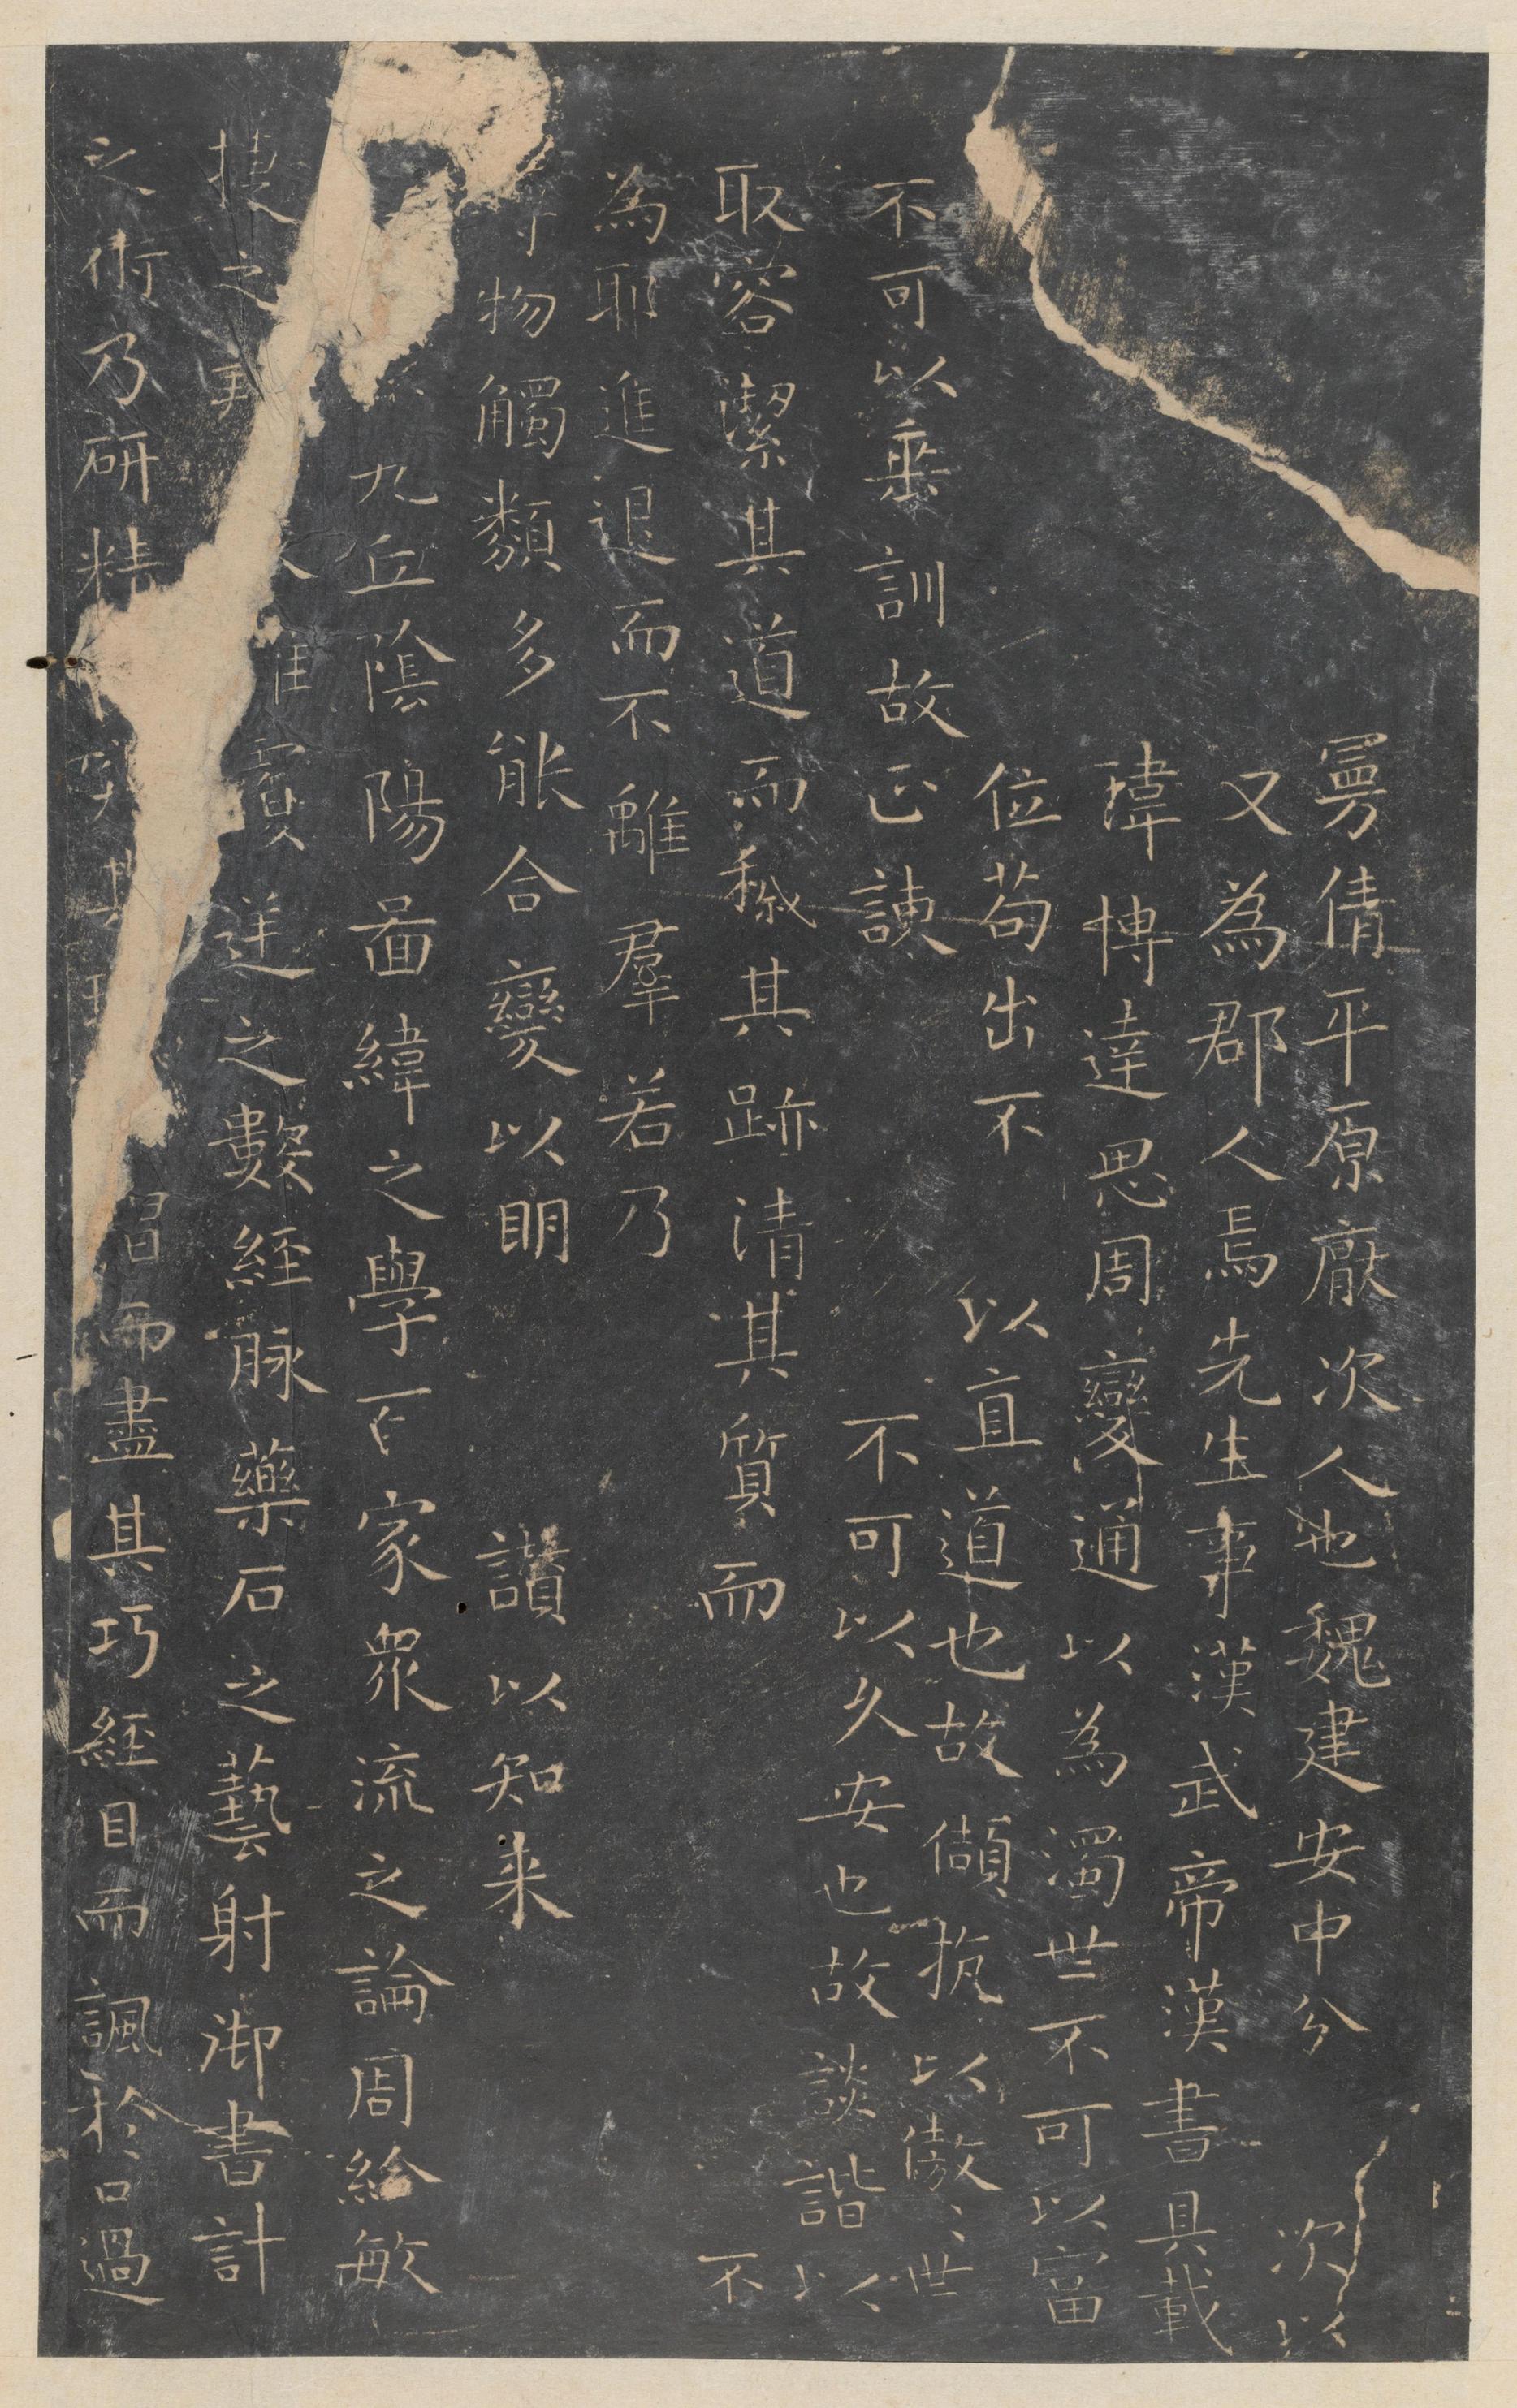 曼倩平原厭次人也魏建安中分 次以
又為郡人焉先生事漢武帝漢書具載
瑋博達思周變通以為濁世不可以富
位苟出不 以直道也故頡抗以傲、世
不可以垂訓故正諫 不可以久安也故談諧以
取容潔其道而穢其跡清其質而 不
為耶進退而不離羣若乃
物觸類多能合變以明 讃以知来
九丘陰陽啚緯之學百家衆流之論周給敏
捷之 賔 逆之數經脉藥石之藝射御書計
之術乃研精 習而盡其巧經目而諷於口過